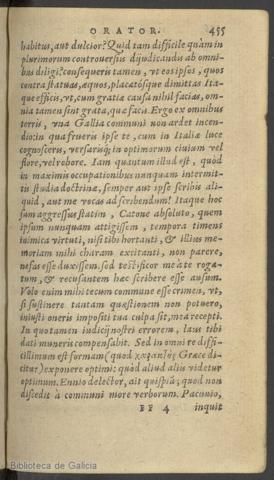 ORATOR. 455
habitus, aut dulcior? Quid tam difficile quàm in
plurimorum controuersiis dijudicandis ab omni-
bus diligi? consequeris tamen, vt eos ipsos, quos
contra statuas, æquos, placatosque dimittas. Ita-
que efficis, vt, cum gratiæ causa nihil facias, om-
nia tamen sint grata, quæ facis. Ergo ex omnibus
terris, vna Gallia communi non ardet incen-
dio: in qua frueris ipse te, cum in Italiæ luce
cognosceris, versarisque in optimorum ciuium vel
flore, vel robore. Iam quantum illud est, quòd
in maximis occupationibus nunquam intermit-
tis studia doctrinæ, semper aut ipse scribis ali-
quid, aut me vocas ad scribendum! Itaque hoc
sum aggressus statim, Catone absoluto, quem
ipsum nunquam attigissem, tempora timens
inimica virtuti, nisi tibi hortanti, & illius me-
moriam mihi charam excitanti, non parere,
nefas esse duxissem. sed testificor me à te roga-
tum, & recusantem hæc scribere esse ausum.
Volo enim mihi tecum commune esse crimen, vt,
si sustinere tantam quæstionem non potuero,
iniusti oneris impositi tua culpa sit, mea recepti.
In quo tamen iudicij nostri errorem, laus tibi
dati muneris compensabit. Sed in omni re diffi-
cillimum est formam (quod χαρακτὴρ Græcè di-
citur) exponere optimi: quòd aliud aliis videtur
optimum. Ennio delector, ait quispiã, quòd non
discedit à communi more verborum. Pacuuio,
FF 4 inquit
Biblioteca de Galicia